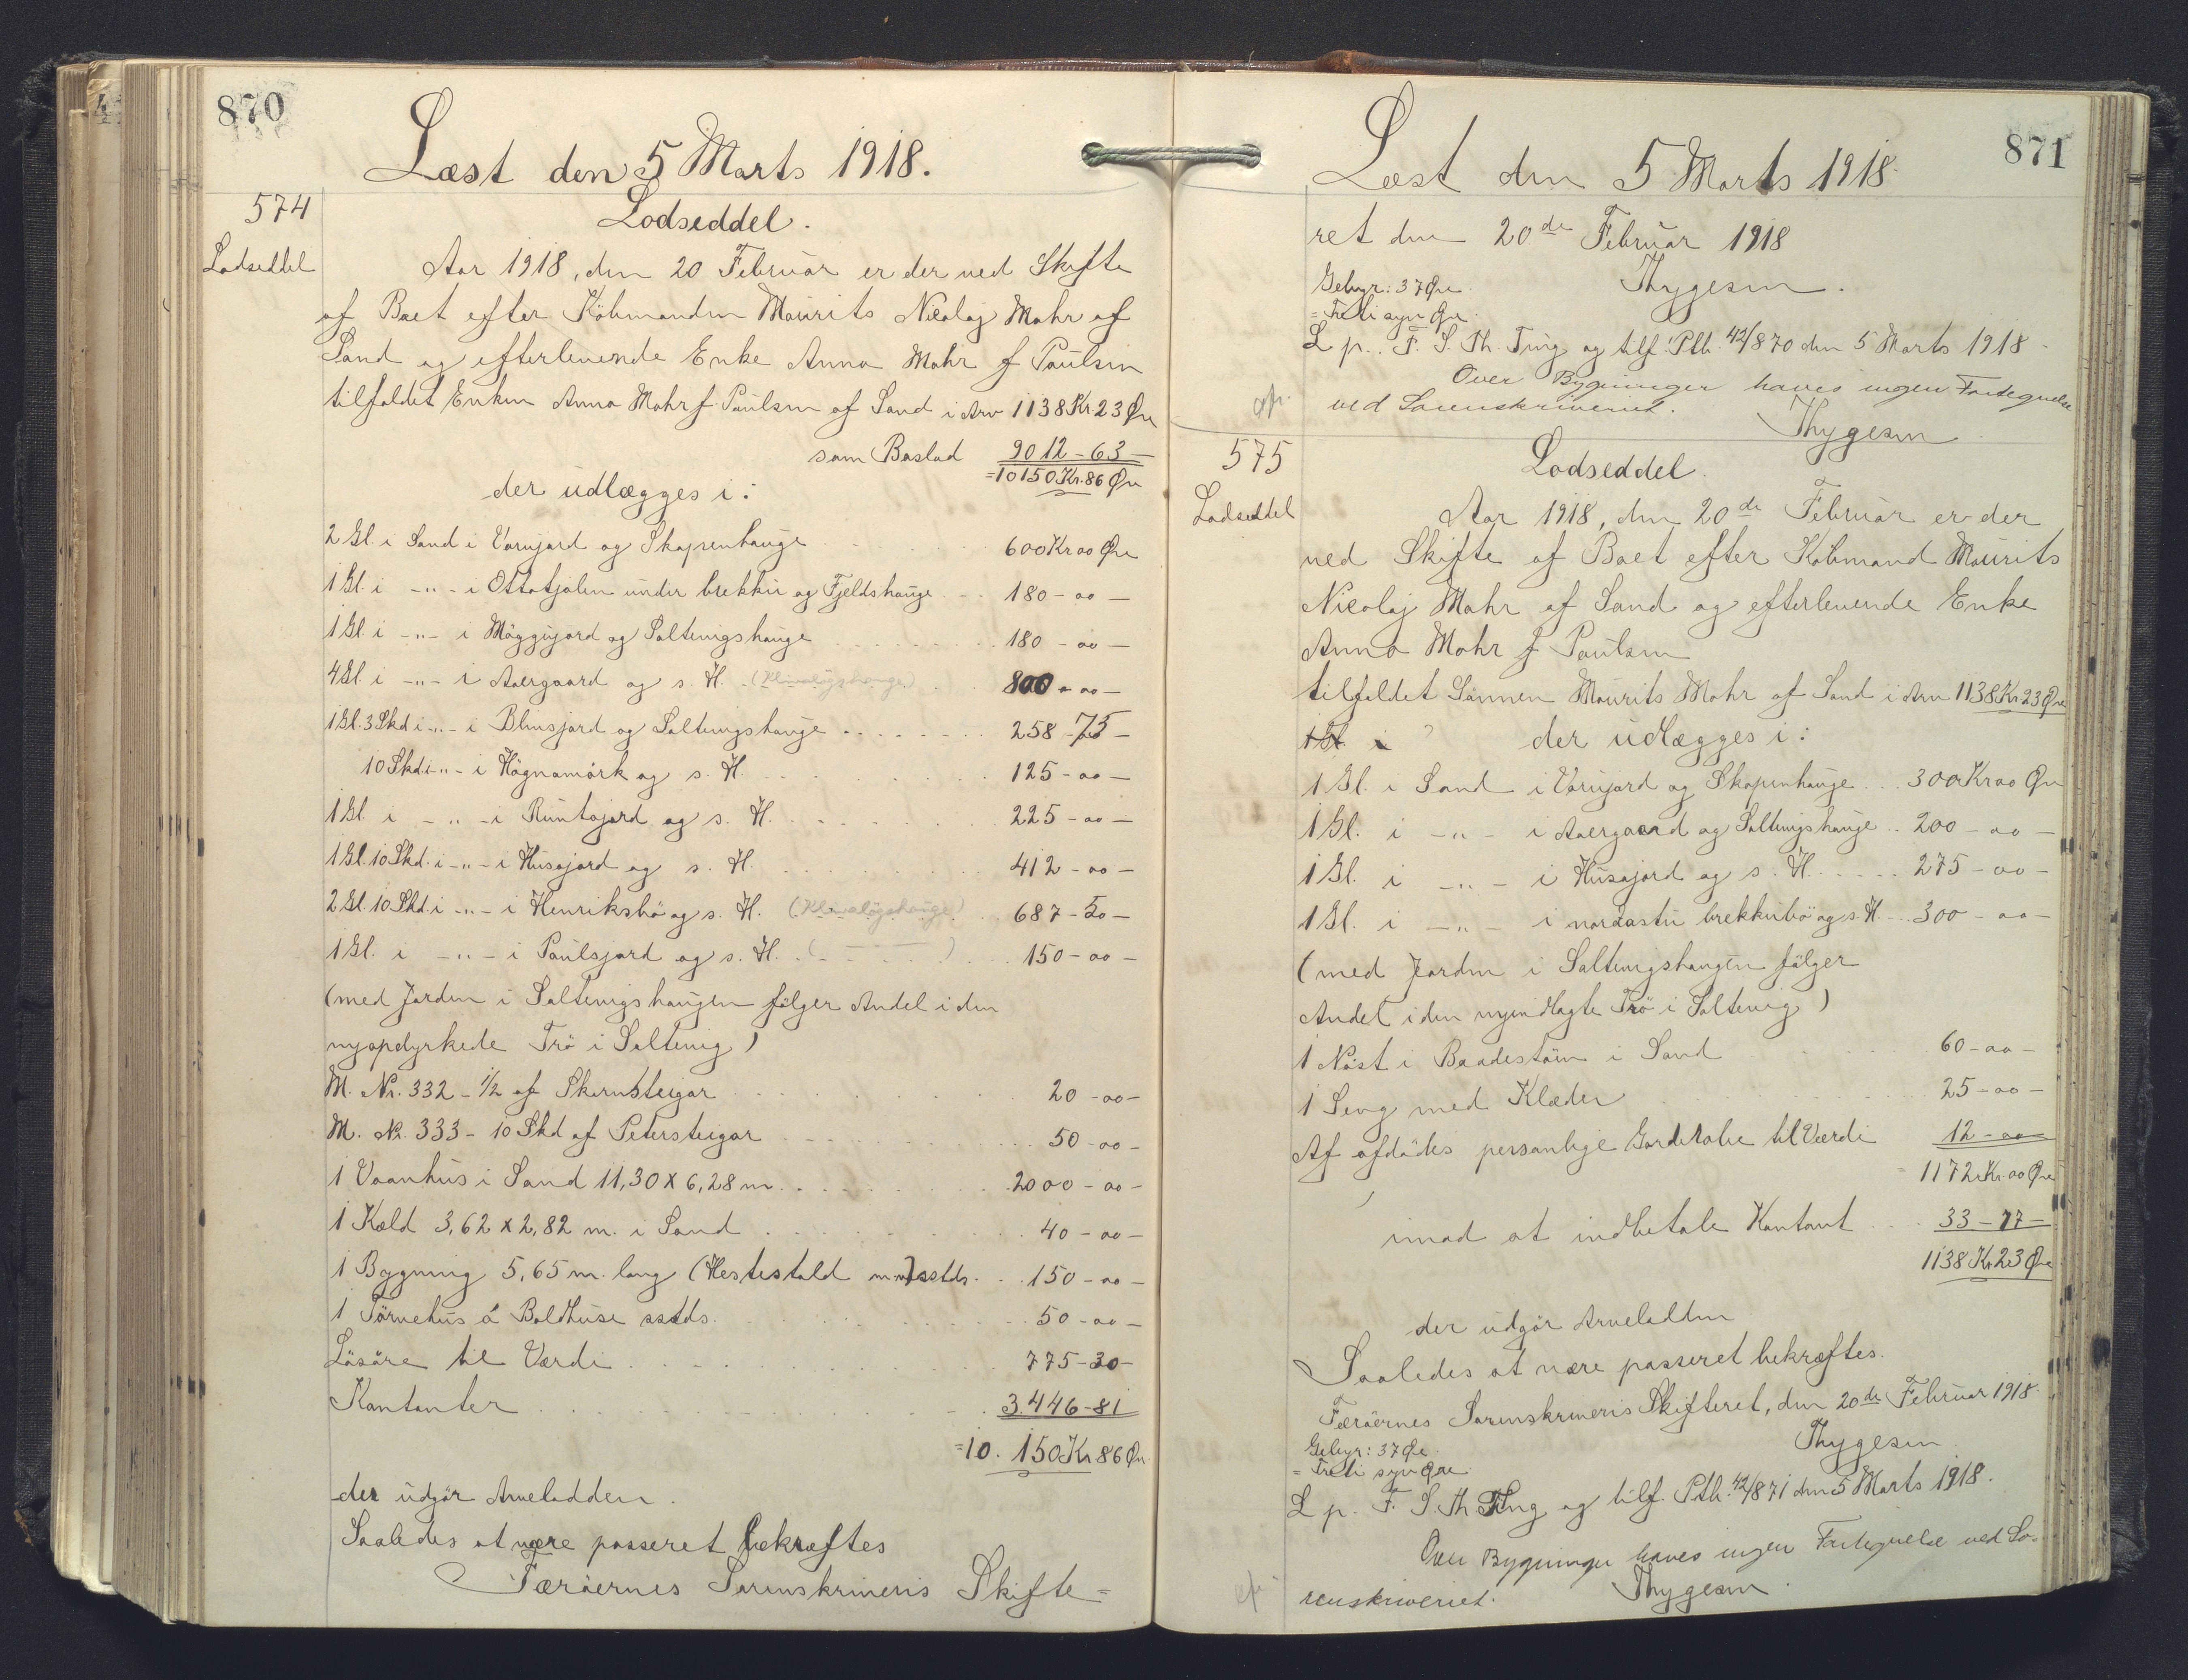 870
Læst den 5 Marts 1918.
574
Lodseddel
Lodseddel.
Aar 1918, den 20 Februar er der ved Skifte
af Boet efter Köbmanden Mourits Nicolaj Mohr af
Sand og efterlevende Enke Anna Mohr f Poulsen
tilfaldet Enken Anna Mohr f Poulsen af Sand i Arv 1138 Kr 23 Øre
som Boslod 9012 - 63 -
= 10150 Kr. 86 Øre
der udlægges i:
2 Gl. i Sand i Vorujord og Skopenhauge 600 Kr 00 Øre
1 Gl. i -"- i Ottatjolen undir brekku og Fjeldshauge 180 - 00 -
1 Gl. i -"- i Möggujord og Soltuvigshauge 180 - 00 -
4 Gl. i -"- i Aaergaard og s. H. 800 - 00 -
1 Gl. 3 Skd i -"- i Blinsjord og Soltuvigshauge 258 - 75 -
10 Skd i -"- i Högnamörk og s. H. 125 - 00 -
1 Gl. i -"- i Runtajord og s. H. 225 - 00 -
1 Gl. 10 Skd. i -"- i Husajord og s. H. 412 - 00 -
2 Gl. 10 Skd. i -"- i Henriksbö og s. H. 687 - 50 -
1 Gl. i -"- i Poulsjord og s. H. ( — ) 150 - 00 -
(med Jorden i Soltuvigshaugen fölger Andel i den
nyopdyrkede Trö i Soltuvig)
M. Nr. 332 - 1/2 af Skarnsteigar 20 - 00 -
M. Nr. 333 - 10 Skd af Petersteigar 50 - 00 -
1 Vaanhus i Sand 11,30 x 6,28 m. 2000 - 00 -
1 Kæld 3,62 x 2,82 m. i Sand 40 - 00 -
1 Bygning 5,65 m. lang (Hestestald m m) sstds. 150 - 00 -
1 Törvehus á Boldhuse sstds. 50 - 00 -
Lösöre til Værdi 775 - 30 -
Kontanter 3.446 - 81
= 10.150 Kr 86 Øre
der udgör Arvelodden.
Saaledes at være passeret bekræftes
Færöernes Sorenskriveris Skifte=
871
Læst den 5 Marts 1918.
ret den 20de Februar 1918
Thygesen.
Gebyr: 37 Øre.
= Treti syv Øre.
L p. F. S. Th. Ting og tilf. Ptb. 42/870 den 5 Marts 1918
Over Bygninger haves ingen Fortegnelse
ved Sorenskriveriet.
Thygesen
575
Lodseddel
Lodseddel.
Aar 1918, den 20de Februar er der
ved Skifte af Boet efter Köbmand Mourits
Nicolaj Mohr af Sand og efterlevende Enke
Anna Mohr f Poulsen
tilfaldet Sönnen Mourits Mohr af Sand i Arv 1138 Kr 23 Øre
1 Gl. i
der udlægges i:
1 Gl. i Sand i Vorujord og Skopenhauge 300 Kr 00 Øre
1 Gl. i -"- i Aaergaard og Soltuvigshauge 200 - 00 -
1 Gl. i -"- i Husajord og s. H. 275 - 00 -
1 Gl. i -"- i nordastu brekkubö og s. H. 300 - 00 -
(med Jorden i Soltuvigshaugen fölger
Andel i den nyindlagte Trö i Soltuvig)
1 Nöst i Baadestöin i Sand 60 - 00 -
1 Seng med Klæder 25 - 00 -
Af afdödes personlige Garderobe til Værdi 12 - 00
= 1172 Kr. 00 Øre
imod at indbetale Kontant 33 - 77 -
1138 Kr 23 Øre
der udgör Arvelodden
Saaledes at være passeret bekræftes.
Færöernes Sorenskriveris Skifteret, den 20de Februar 1918.
Thygesen
Gebyr: 37 Øre.
= Treti syv Øre
L p. F. S. Th Ting og tilf. Ptb. 42/871 den 5 Marts 1918.
Over Bygninger haves ingen Fortegnelse ved So-
renskriveriet.
Thygesen